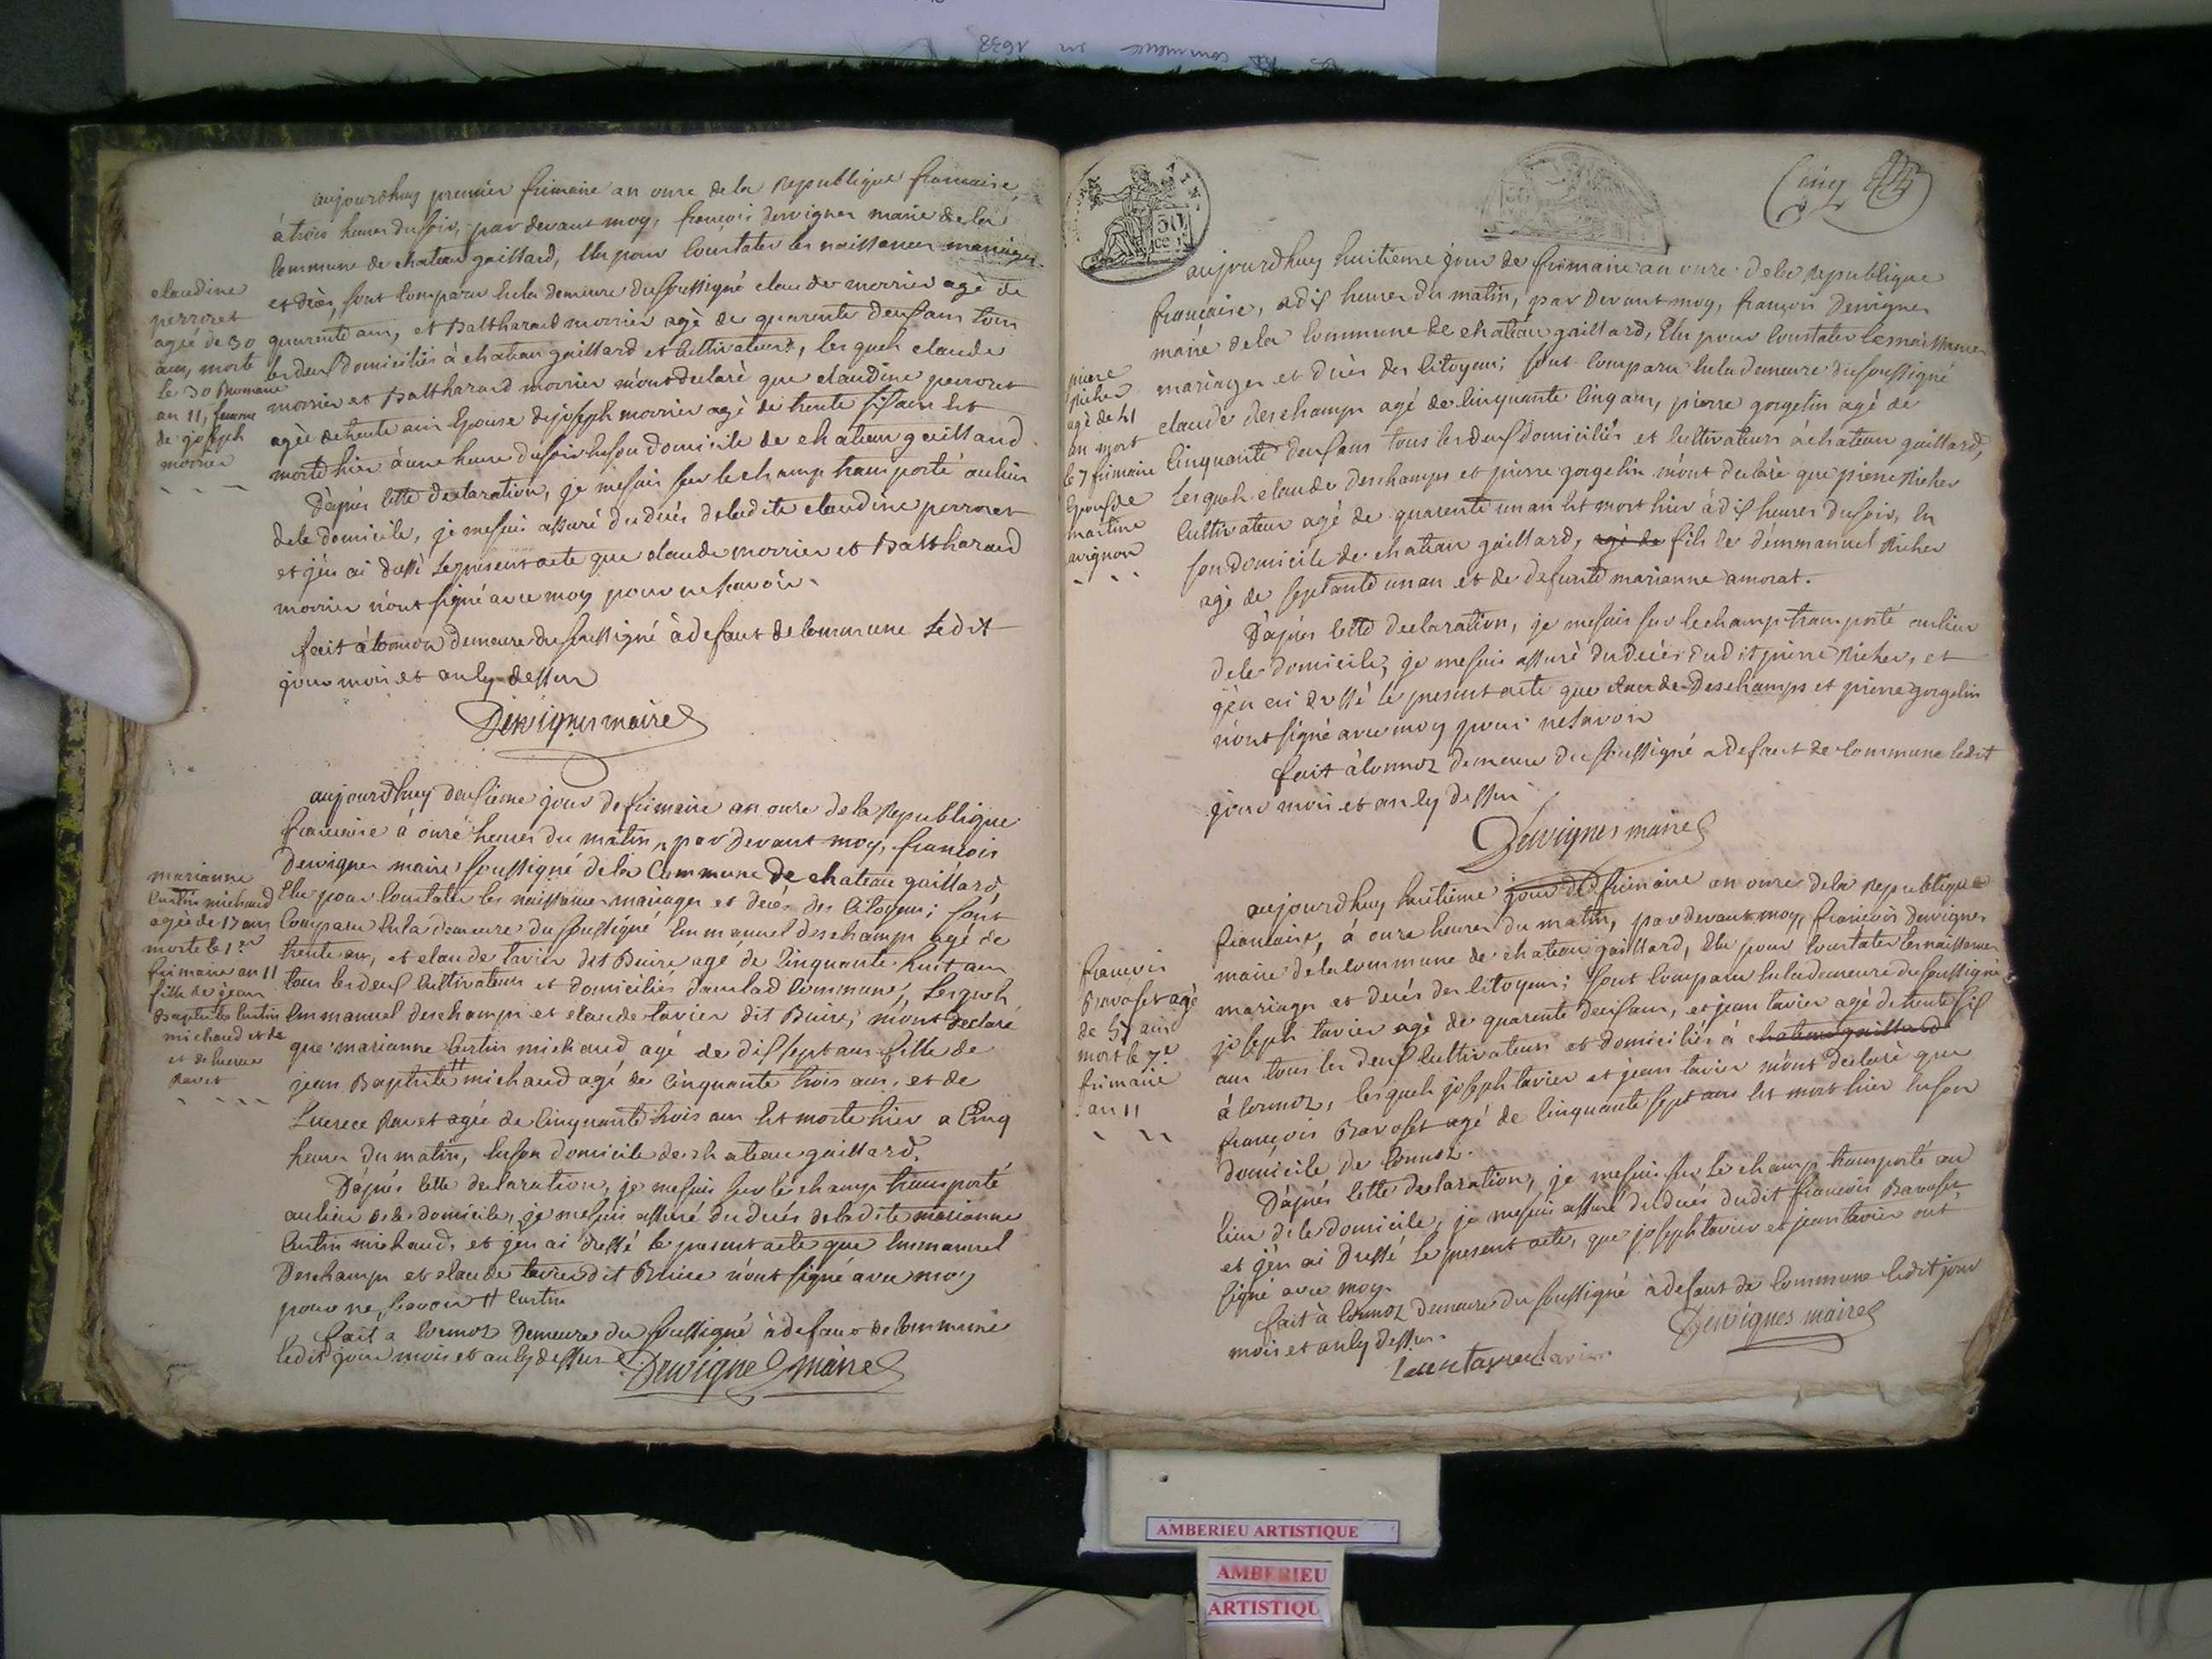 commence en 1638
aujourdhuy premier frimaire an onze de la republique francaise,
à trois heures du soir, par devant moy, françois dervignes maire de la
commune de chateau gaillard, Elu pour Constater les naissances mariages
et décès, sont Comparu en la demeure du soussigné claude morrier agé de
quarente ans, et Balthazard morrier agé de quarente deux ans tous
les deux domiciliés à chateau gaillard et Cultivateurs, les quels claude
morrier et Balthazard morrier m'ont declaré que claudine perroret
agée de trente ans Epouse de joseph morrier agé de trente six ans Est
morte hier à une heure du soir en son domicile de chateau gaillard
D'après Cette declaration, je me suis sur le champ transporté au lieu
de ce domicile, je me suis assuré du décès de ladite claudine perroret
et j'en ai dressé le présent acte que claude morrier et Balthazard
morrier n'ont signé avec moy pour ne savoir.
fait à Cormoz demeure du soussigné à defaut de Commune Ledit
jour mois et an cy dessus
Dervignes maire
claudine
perroret
agée de 30
ans, morte
le 30 Brumaire
an 11, femme
de joseph
morrier
aujourdhuy deuxieme jour de frimaire an onze de la Republique
francaise à onze heures du matin, par devant moy, francois
Dervignes maire soussigné de la Commune de chateau gaillard,
Elu pour Constater les naissances mariages et décés des Citoyens; sont
Comparu en la demeure du soussigné Emmanuel deschamps agé de
trente ans, et claude tavier dit Buire agé de Cinquante huit ans
tous les deux Cultivateurs et domiciliés dans lad Commune, Lesquels
Emmanuel deschamps et claude tavier dit Buire, m'ont declaré
que marianne Curtin michaud agé de dix sept ans fille de
jean Baptiste # michaud agé de Cinquante trois ans, et de
Lucrece Ravet agée de Cinquante trois ans Est morte hier a Cinq
heures du matin, en son domicile de chateau gaillard.
D'après Cette declaration, je me suis sur le champ transporté
au lieu de ce domicile, je me suis assuré du décés de ladite marianne
Curtin michaud, et j'en ai dressé le present acte que Emmanuel
Deschamps et claude tavier dit Buire n'ont signé avec moy
pour ne savoir # Curtin
fait a Cormoz Demeure du soussigné à defaut de Commune
Ledit jour mois et an cy dessus. Dervignes maire
marianne
Curtin michaud
agée de 17 ans
morte le 1er
frimaire an 11
fille de jean
Baptiste Curtin
michaud et de
et de lucrece
Ravet
30
Cinq
aujourdhuy huitieme jour de frimaire an onze de la Republique
francaise, a dix heures du matin, par devant moy, françois Dervignes
maire de la Commune de chateau gaillard, Elu pour Constater les naissances
mariages et décès des Citoyens; sont Comparu en la demeure du soussigné
claude deschamps agé de Cinquante Cinq ans, pierre gorgelin agé de
Cinquante deux ans tous les deux domiciliés et Cultivateurs à chateau gaillard,
Lesquels claude deschamps et pierre gorgelin m'ont declaré que pierre Richer
Cultivateur agé de quarente un an Est mort hier à dix heures du soir, En
son domicile de chateau gaillard, agé de fils de d'emmanuel Richer
agé de septante un an et de defunte marianne amorat.
D'après Cette declaration, je me suis sur le champ transporté au lieu
de ce domicile, je me suis assuré du décès dudit pierre Richer, et
j'en ai dressé le present acte que claude Deschamps et pierre gorgelin
n'ont signé avec moy pour ne savoir
fait à Cormoz demeure du soussigné a defaut de Commune ledit
jour mois et an cy dessus
Dervignes maire
pierre
Richer
agé de 41
an mort
le 7 frimaire
Epoux de
martine
avignon
aujourdhuy huitieme jour de frimaire an onze de la republique
francaise, à onze heures du matin, par devant moy, françois Dervignes
maire de la Commune de chateau gaillard, Elu pour Constater les naissances
mariages et decés des Citoyens; sont Comparu en la demeure du soussigné
joseph tavier agé de quarente deux ans, et jean tavier agé de trente six
ans tous les deux Cultivateurs et domiciliés à chateau gaillard
à Cormoz, lesquels joseph tavier et jean tavier m'ont declaré que
françois Bavoset agé de Cinquante sept ans Est mort hier en son
domicile de Cormoz.
D'après Cette declaration, je me suis sur Le champ transporté au
lieu de ce domicile, je me suis assuré du décés dudit francois Bavoset,
et j'en ai Dressé Le present acte, que joseph tavier et jean tavier ont
signé avec moy.
fait à Cormoz demeure du soussigné à defaut de Commune ledit jour
mois et an cy dessus.
Dervignes maire
francois
Bavoset agé
de 57 ans
mort le 7e
frimaire
an 11
AMBERIEU ARTISTIQUE
AMBERIEU
ARTISTIQU